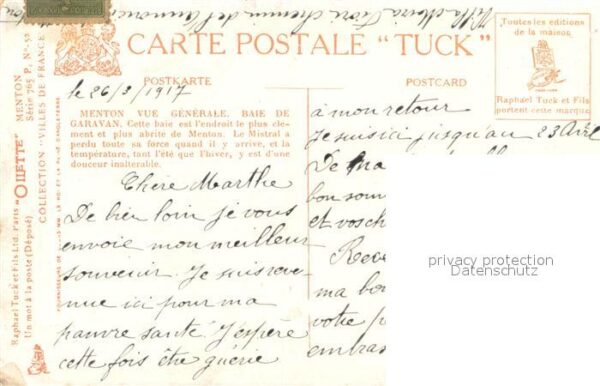 CARTE POSTALE "TUCK"
POSTKARTE
POSTCARD
Toutes les editions
de la maison
Raphael Tuck et Fils
portent cette marque
le 26/3/1917
MENTON VUE GÉNÉRALE. BAIE DE
GARAVAN. Cette baie est l'endroit le plus cle-
ment et plus abrite de Menton. Le Mistral a
perdu toute sa force quand il y arrive, et la
température, tant l'été que l'hiver, y est d'une
douceur inaltérable.
Chère Marthe
De bien loin je vous
envoie mon meilleur
souvenir. Je suis reve-
nue ici pour ma
pauvre santé. J'espère
cette fois être guérie
à mon retour
Je suis ici jusqu'au 23 Avril
De ma
bon souv
et vos ch
Rece
ma bon
votre p
embras
Villa Maura chemin de l'annonc
MENTON
Série 765 P, N°
COLLECTION "VILLES DE FRANCE
"OILETTE"
Raphael Tuck et Fils Ltd. Paris
Un mot à la poste (Déposé)
privacy protection
Datenschutz